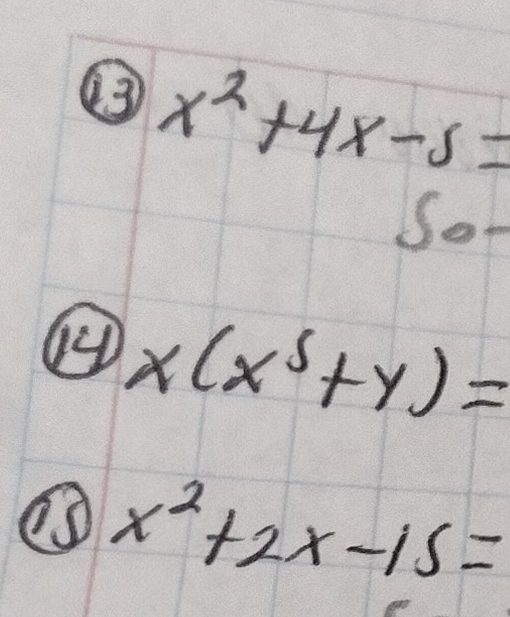 ⑬ x² + 4x - 5 =
So-
⑭ x(x⁵ + y) =
⑮ x² + 2x - 15 =